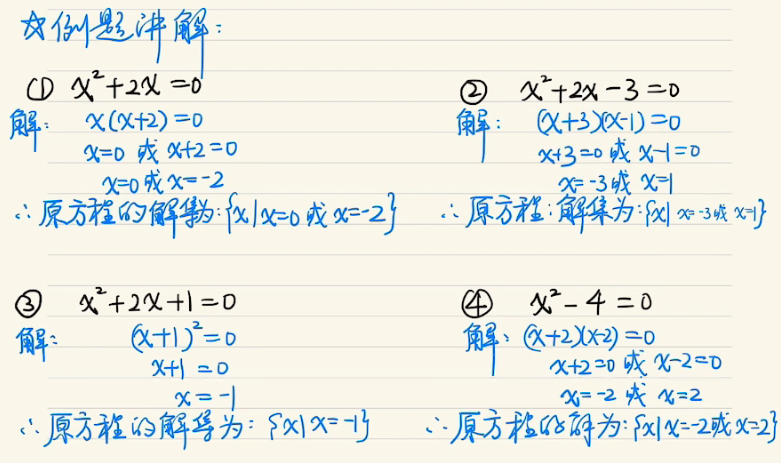 ☆例题讲解:
① x²+2x=0
解: x(x+2)=0
x=0 或 x+2=0
x=0或x=-2
∴原方程的解集为:{x|x=0或x=-2}
② x²+2x-3=0
解: (x+3)(x-1)=0
x+3=0或 x-1=0
x=-3或 x=1
∴原方程:解集为:{x|x=-3或x=1}
③ x²+2x+1=0
解: (x+1)²=0
x+1=0
x=-1
∴原方程的解集为:{x|x=-1}
④ x²-4=0
解: (x+2)(x-2)=0
x+2=0 或 x-2=0
x=-2 或 x=2
∴原方程的解为:{x|x=-2或x=2}